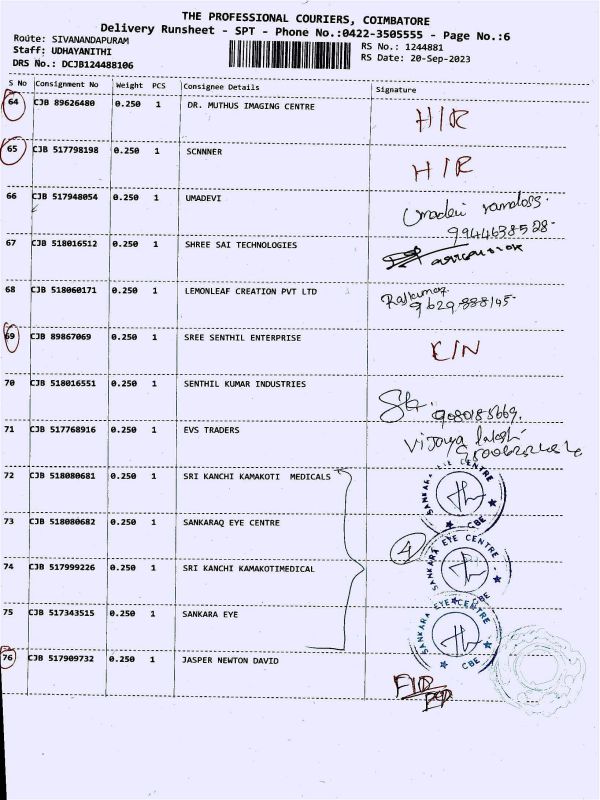 THE PROFESSIONAL COURIERS, COIMBATORE
Delivery Runsheet - SPT - Phone No.:0422-3505555 - Page No.:6
Route: SIVANANDAPURAM
Staff: UDHAYANITHI
DRS No.: DCJB124488106
RS No.: 1244881
RS Date: 20-Sep-2023
S No Consignment No Weight PCS Consignee Details Signature
64 CJB 89626480 0.250 1 DR. MUTHUS IMAGING CENTRE H/R
65 CJB 517798198 0.250 1 SCNNNER H/R
66 CJB 517948054 0.250 1 UMADEVI Umadevi ramdoss.
9944638528
67 CJB 518016512 0.250 1 SHREE SAI TECHNOLOGIES
68 CJB 518060171 0.250 1 LEMONLEAF CREATION PVT LTD Rajkumar
9629888145
69 CJB 89867069 0.250 1 SREE SENTHIL ENTERPRISE
70 CJB 518016551 0.250 1 SENTHIL KUMAR INDUSTRIES
9080185669.
71 CJB 517768916 0.250 1 EVS TRADERS Vijaya
72 CJB 518080681 0.250 1 SRI KANCHI KAMAKOTI MEDICALS SANKARA EYE CENTRE CBE
73 CJB 518080682 0.250 1 SANKARAQ EYE CENTRE 4 SANKARA EYE CENTRE CBE
74 CJB 517999226 0.250 1 SRI KANCHI KAMAKOTIMEDICAL
75 CJB 517343515 0.250 1 SANKARA EYE SANKARA EYE CENTRE CBE
76 CJB 517909732 0.250 1 JASPER NEWTON DAVID